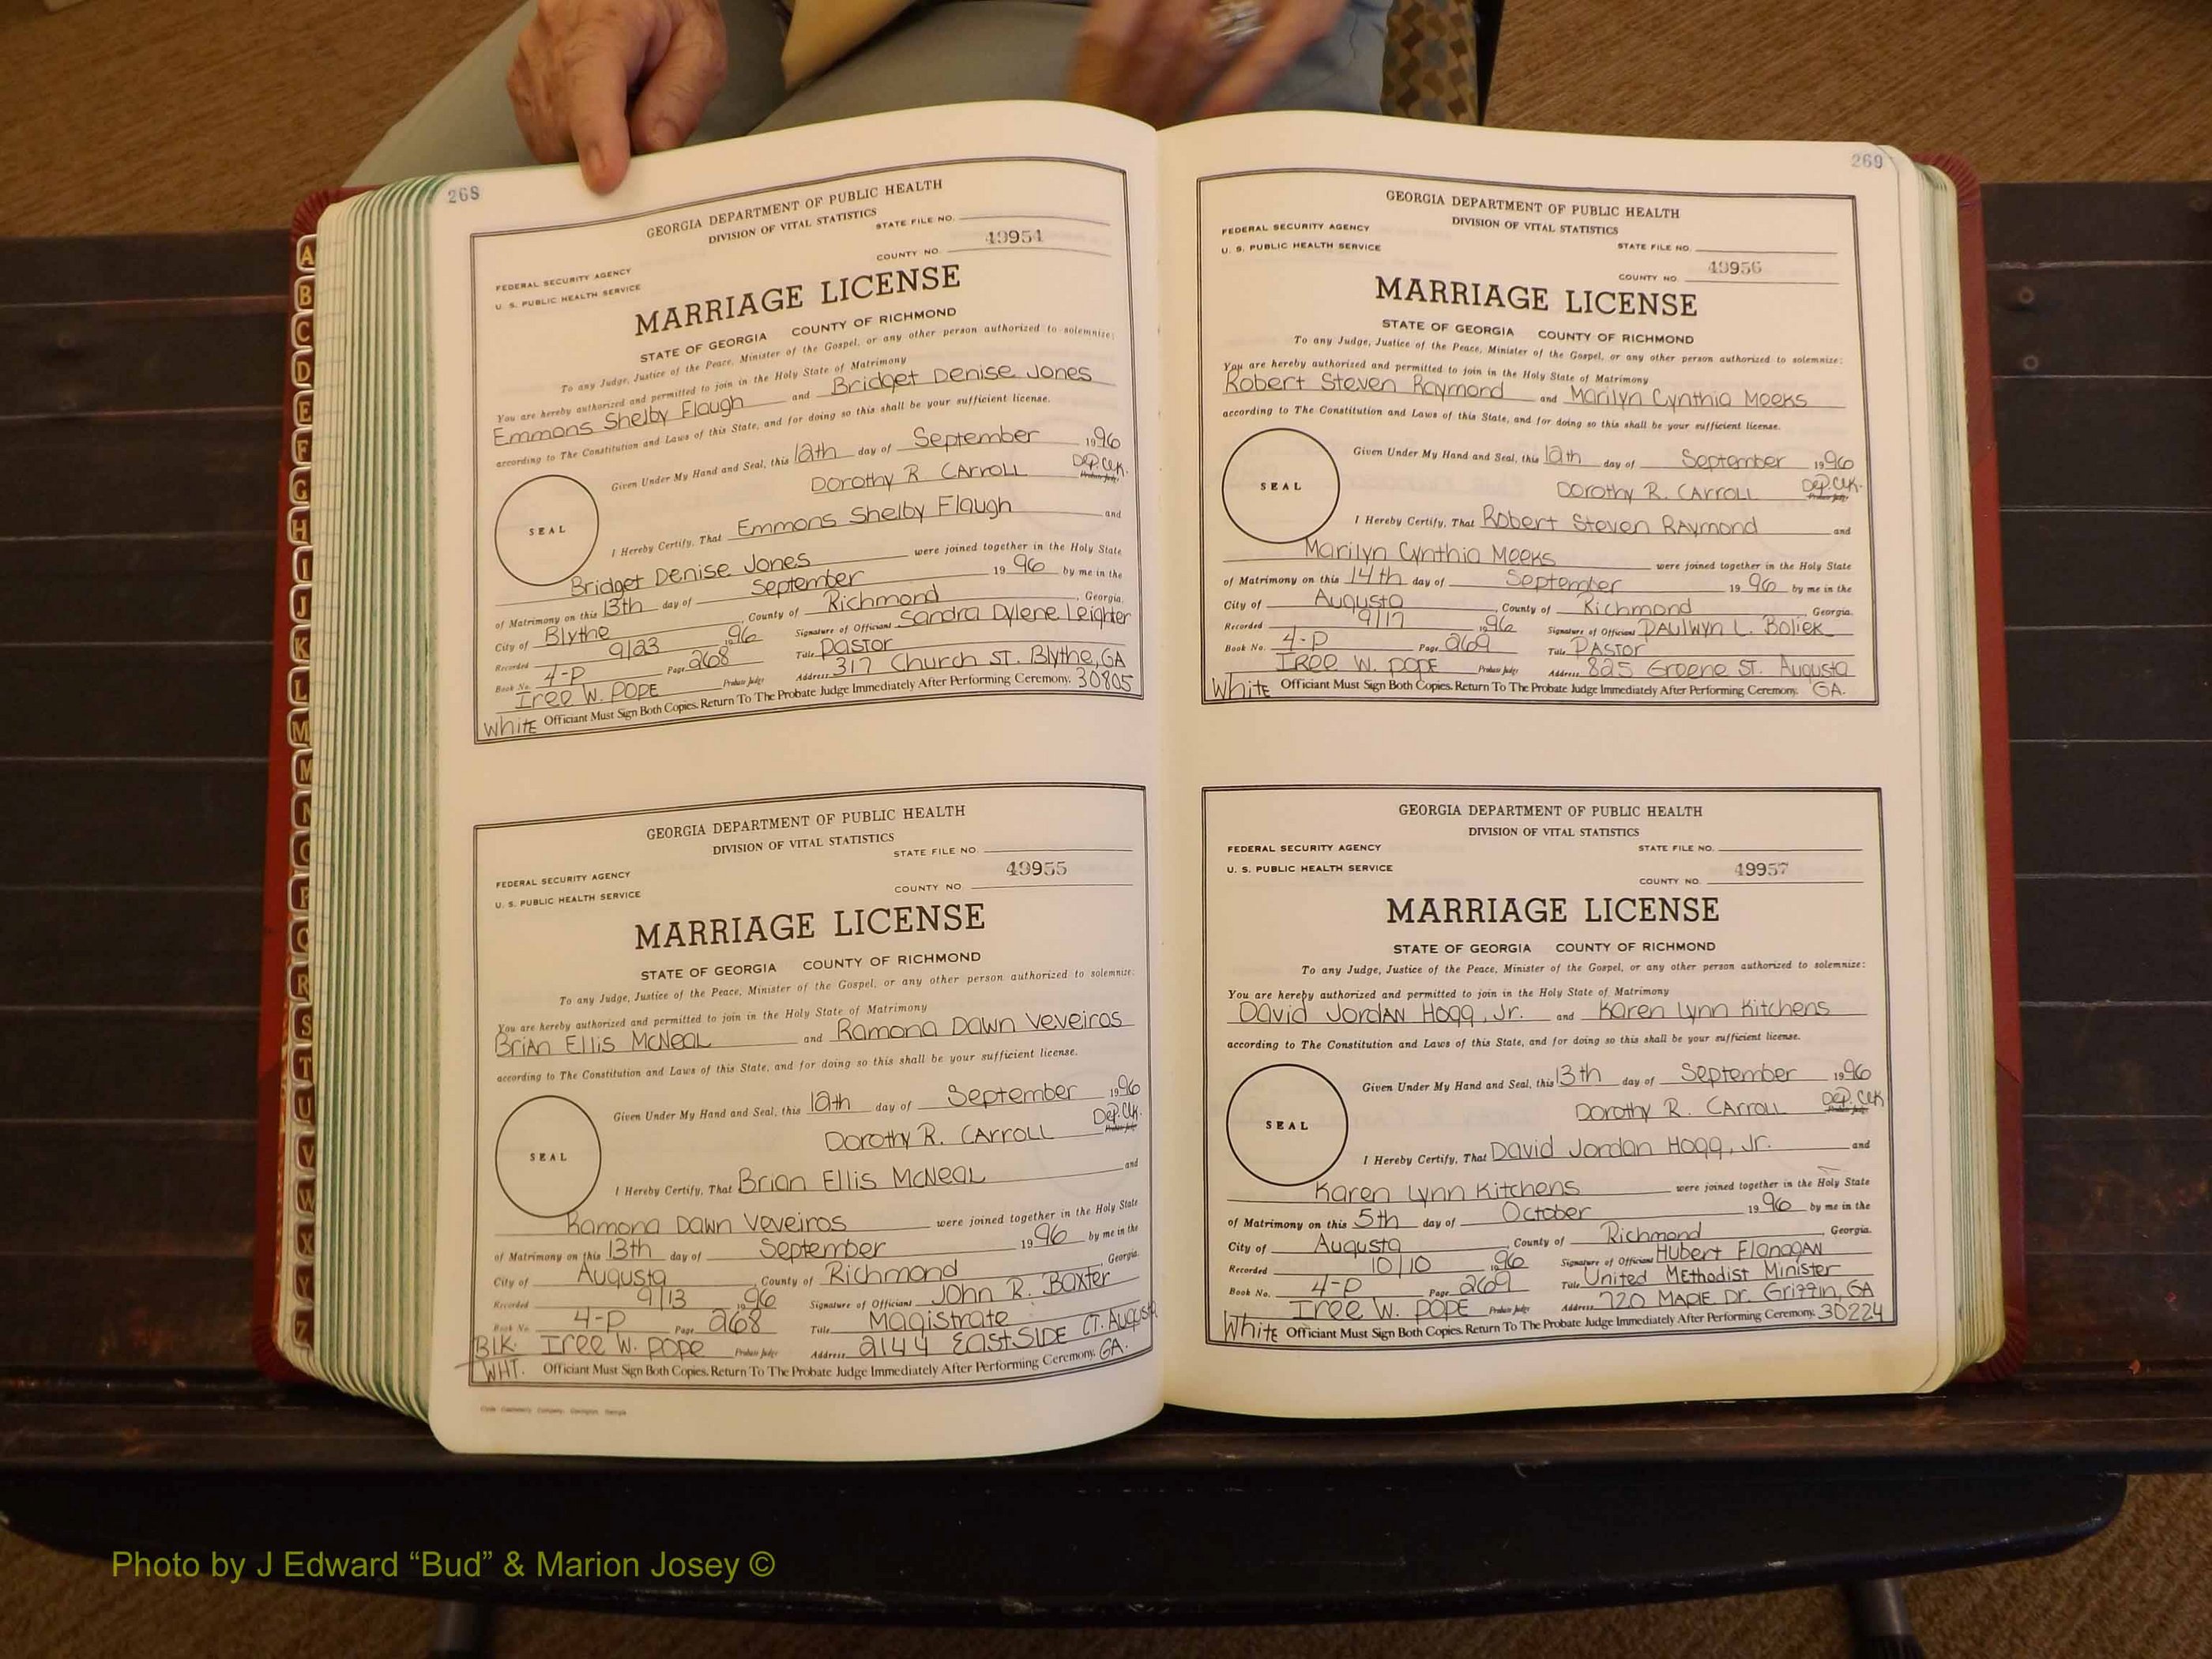 268
GEORGIA DEPARTMENT OF PUBLIC HEALTH
DIVISION OF VITAL STATISTICS
STATE FILE NO.
49954
COUNTY NO.
FEDERAL SECURITY AGENCY
U. S. PUBLIC HEALTH SERVICE
MARRIAGE LICENSE
STATE OF GEORGIA COUNTY OF RICHMOND
To any Judge, Justice of the Peace, Minister of the Gospel, or any other person authorized to solemnize:
You are hereby authorized and permitted to join in the Holy State of Matrimony
Emmons Shelby Flaugh and Bridget Denise Jones
according to The Constitution and Laws of this State, and for doing so this shall be your sufficient license.
Given Under My Hand and Seal, this 12th day of September 1996
Dorothy R. Carroll Dep. Clk.
SEAL
I Hereby Certify, That Emmons Shelby Flaugh and
Bridget Denise Jones were joined together in the Holy State
of Matrimony on this 13th day of September 1996 by me in the
City of Blythe, County of Richmond, Georgia.
Recorded 9/23 1996 Signature of Officiant Sandra Dylene Leighter
Book No. 4-P Page 268 Title Pastor
Iree W. Pope Probate Judge Address 317 Church St. Blythe, GA
White Officiant Must Sign Both Copies. Return To The Probate Judge Immediately After Performing Ceremony. 30805
GEORGIA DEPARTMENT OF PUBLIC HEALTH
DIVISION OF VITAL STATISTICS
STATE FILE NO.
49955
COUNTY NO.
FEDERAL SECURITY AGENCY
U. S. PUBLIC HEALTH SERVICE
MARRIAGE LICENSE
STATE OF GEORGIA COUNTY OF RICHMOND
To any Judge, Justice of the Peace, Minister of the Gospel, or any other person authorized to solemnize:
You are hereby authorized and permitted to join in the Holy State of Matrimony
Brian Ellis McNeal and Ramona Dawn Veveiros
according to The Constitution and Laws of this State, and for doing so this shall be your sufficient license.
Given Under My Hand and Seal, this 12th day of September 1996
Dorothy R. Carroll Dep. Clk.
SEAL
I Hereby Certify, That Brian Ellis McNeal and
Ramona Dawn Veveiros were joined together in the Holy State
of Matrimony on this 13th day of September 1996 by me in the
City of Augusta, County of Richmond, Georgia.
Recorded 9/13 1996 Signature of Officiant John R. Baxter
Book No. 4-P Page 268 Title Magistrate
Blk. Iree W. Pope Probate Judge Address 2144 Eastside Ct. Augusta
WHT. Officiant Must Sign Both Copies. Return To The Probate Judge Immediately After Performing Ceremony. GA.
269
GEORGIA DEPARTMENT OF PUBLIC HEALTH
DIVISION OF VITAL STATISTICS
FEDERAL SECURITY AGENCY
U. S. PUBLIC HEALTH SERVICE
STATE FILE NO.
49956
COUNTY NO.
MARRIAGE LICENSE
STATE OF GEORGIA COUNTY OF RICHMOND
To any Judge, Justice of the Peace, Minister of the Gospel, or any other person authorized to solemnize:
You are hereby authorized and permitted to join in the Holy State of Matrimony
Robert Steven Raymond and Marilyn Cynthia Meeks
according to The Constitution and Laws of this State, and for doing so this shall be your sufficient license.
Given Under My Hand and Seal, this 12th day of September 1996
Dorothy R. Carroll Dep. Clk.
SEAL
I Hereby Certify, That Robert Steven Raymond and
Marilyn Cynthia Meeks were joined together in the Holy State
of Matrimony on this 14th day of September 1996 by me in the
City of Augusta, County of Richmond, Georgia.
Recorded 9/17 1996 Signature of Officiant Paulwyn L. Boliek
Book No. 4-P Page 269 Title Pastor
Iree W. Pope Probate Judge Address 825 Greene St. Augusta
White Officiant Must Sign Both Copies. Return To The Probate Judge Immediately After Performing Ceremony. GA.
GEORGIA DEPARTMENT OF PUBLIC HEALTH
DIVISION OF VITAL STATISTICS
FEDERAL SECURITY AGENCY
STATE FILE NO.
U. S. PUBLIC HEALTH SERVICE
49957
COUNTY NO.
MARRIAGE LICENSE
STATE OF GEORGIA COUNTY OF RICHMOND
To any Judge, Justice of the Peace, Minister of the Gospel, or any other person authorized to solemnize:
You are hereby authorized and permitted to join in the Holy State of Matrimony
David Jordan Hogg, Jr. and Karen Lynn Kitchens
according to The Constitution and Laws of this State, and for doing so this shall be your sufficient license.
Given Under My Hand and Seal, this 13th day of September 1996
Dorothy R. Carroll Dep. Clk
SEAL
I Hereby Certify, That David Jordan Hogg, Jr. and
Karen Lynn Kitchens were joined together in the Holy State
of Matrimony on this 5th day of October 1996 by me in the
City of Augusta, County of Richmond, Georgia.
Recorded 10/10 1996 Signature of Officiant Hubert Flanagan
Book No. 4-P Page 269 Title United Methodist Minister
Iree W. Pope Probate Judge Address 720 Marie Dr. Griffin, GA
White Officiant Must Sign Both Copies. Return To The Probate Judge Immediately After Performing Ceremony. 30224
Photo by J Edward “Bud” & Marion Josey ©